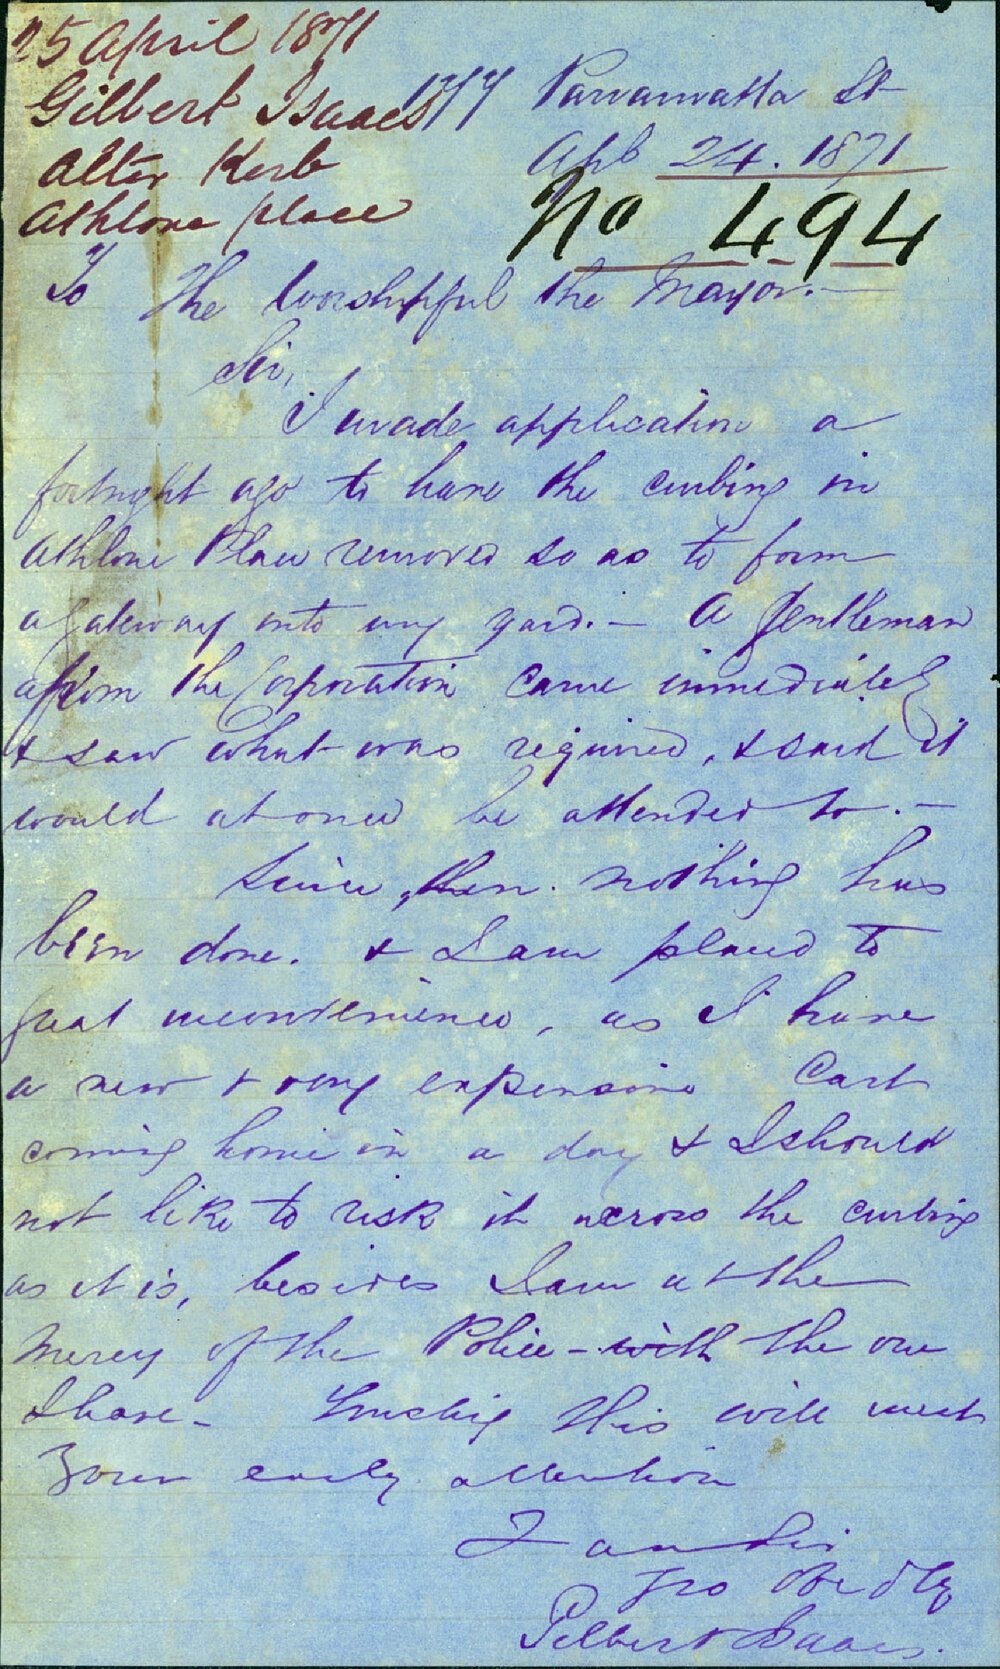 25 April 1871
Gilbert Isaacs
Alter Kerb
Athlone place
177 Parramatta St
Apl 24. 1871
No 494
To The Worshipful the Mayor. —
Sir,
I made application a
fortnight ago to have the curbing in
Athlone Place removed so as to form
a gateway into my yard. — A gentleman
from the Corporation came immediately
& saw what was required, & said it
would at once be attended to. —
Since then nothing has
been done. & I am placed to
great inconvenience, as I have
a new & very expensive Cart
coming home in a day & I should
not like to risk it across the curbing
as it is, besides I am at the
mercy of the Police - with the one
I have - Trusting this will meet
Your early attention
I am Sir
Yrs Obedly
Gilbert Isaacs.